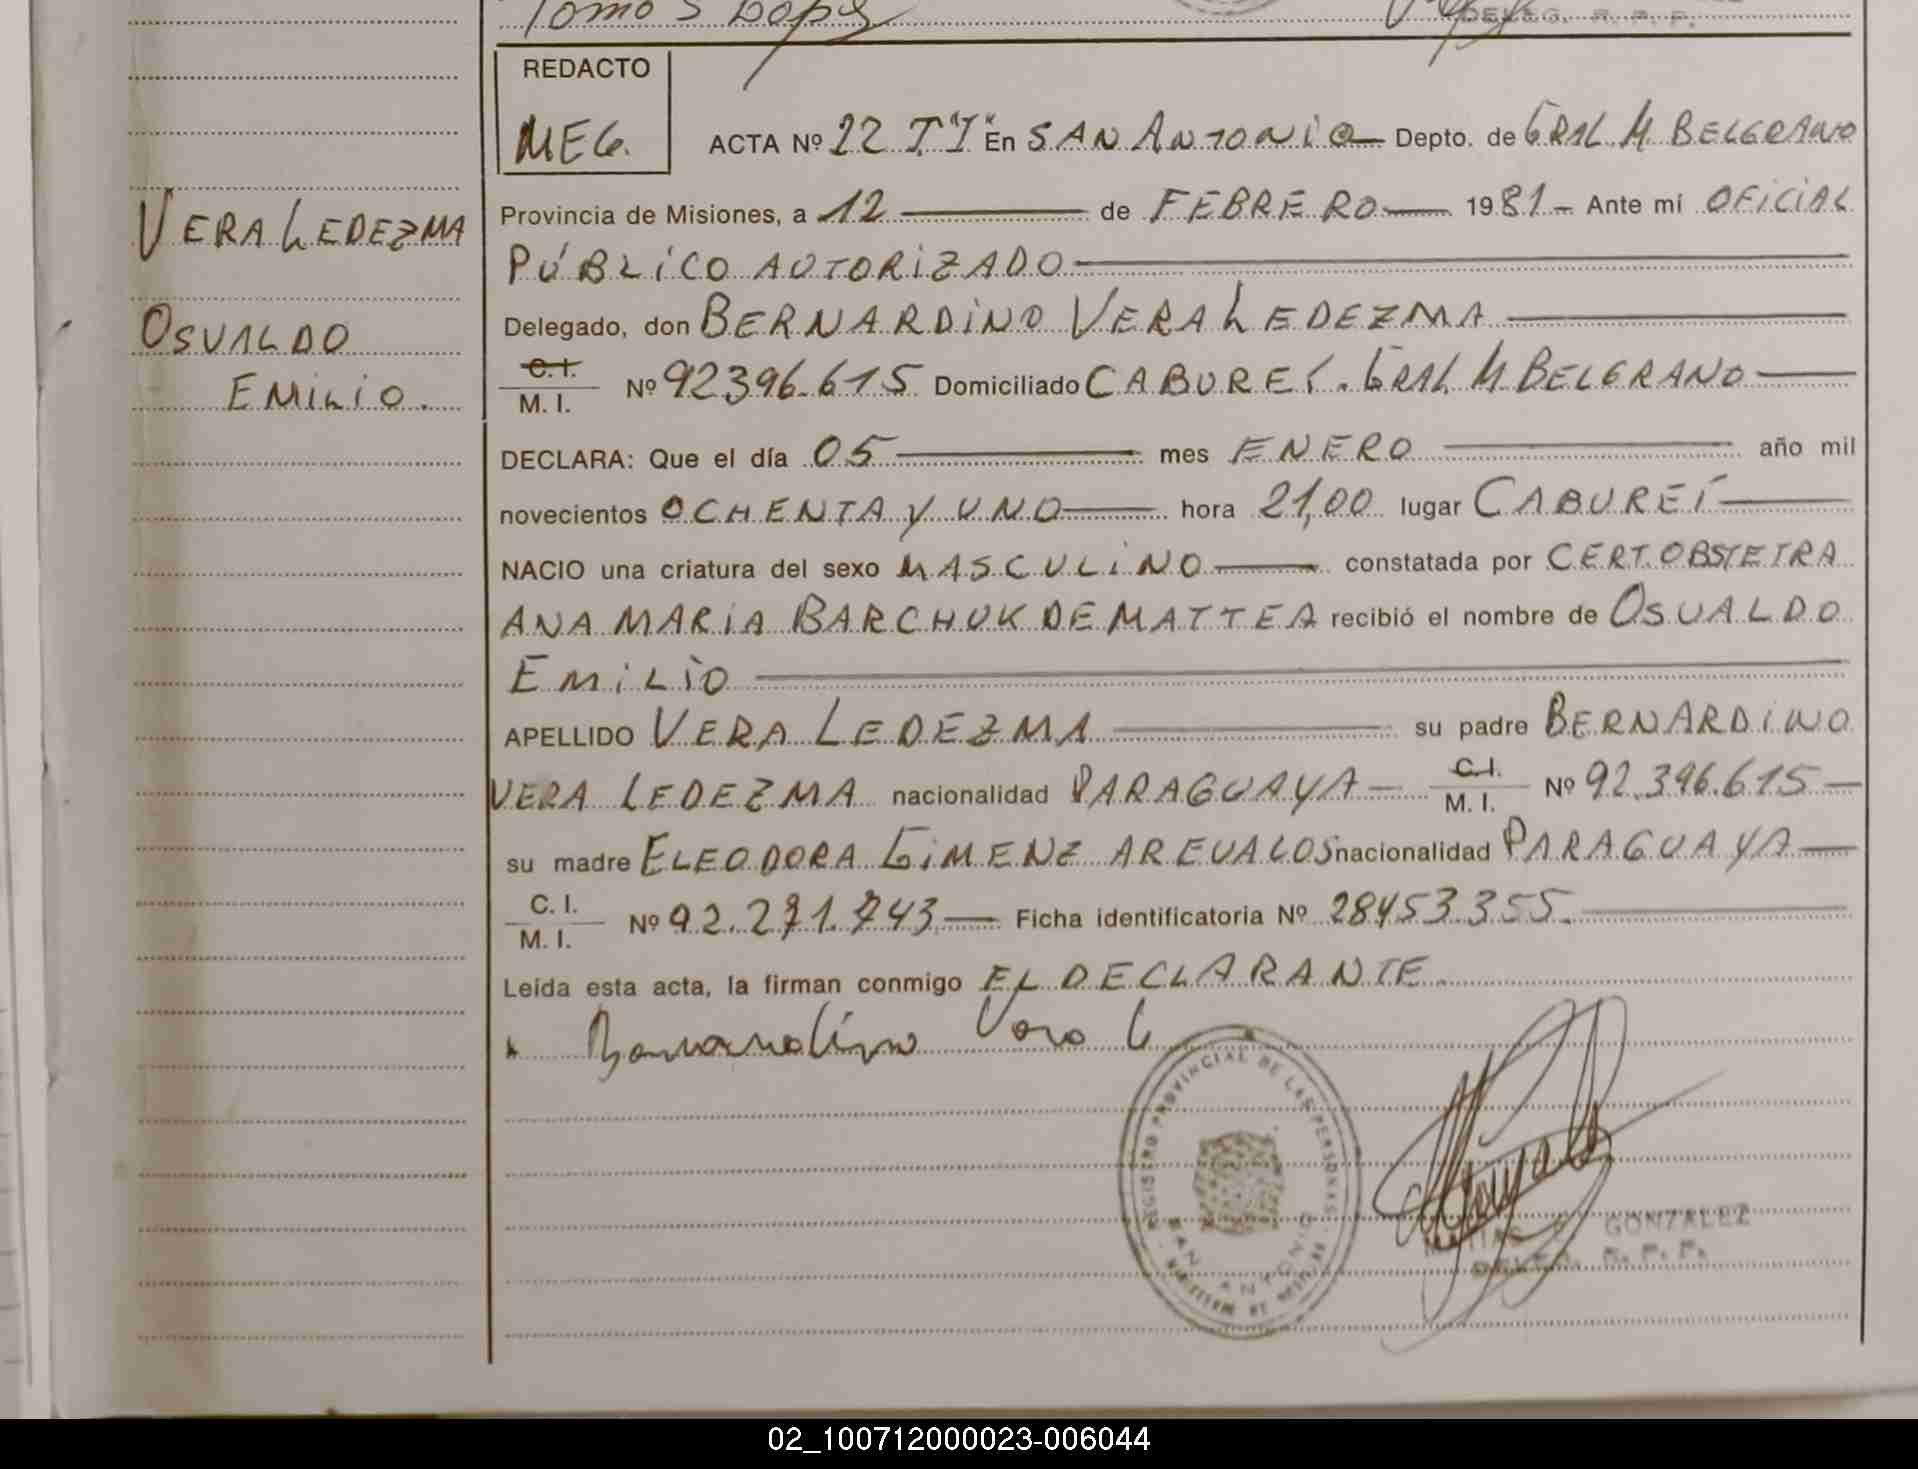 Tomo S Lopez
DELEG. R. P. P.
REDACTO
MEG.
ACTA Nº 22 T "I" En SAN ANTONIO Depto. de GRAL M. BELGRANO
Provincia de Misiones, a 12 de FEBRERO 1981 - Ante mí OFICIAL
PÚBLICO AUTORIZADO
Delegado, don BERNARDINO VERA LEDEZMA
C.I. / M. I. Nº 92396.615 Domiciliado CABUREÍ. GRAL M. BELGRANO
DECLARA: Que el día 05 mes ENERO año mil
novecientos OCHENTA Y UNO hora 21,00 lugar CABUREÍ
NACIO una criatura del sexo MASCULINO constatada por CERT. OBSTETRA
ANA MARIA BARCHUK DE MATTEA recibió el nombre de OSVALDO
EMILIO
APELLIDO VERA LEDEZMA su padre BERNARDINO
VERA LEDEZMA nacionalidad PARAGUAYA C.I. / M. I. Nº 92.396.615
su madre ELEODORA GIMENZ AREVALOS nacionalidad PARAGUAYA
C. I. / M. I. Nº 92.271.743 Ficha identificatoria Nº 28453.355.
Leída esta acta, la firman conmigo EL DECLARANTE.
Bernardino Vera L
VERA LEDEZMA
OSVALDO
EMILIO.
REGISTRO PROVINCIAL DE LAS PERSONAS
SAN ANTONIO
GONZALEZ
DELEG. R. P. P.
02_100712000023-006044